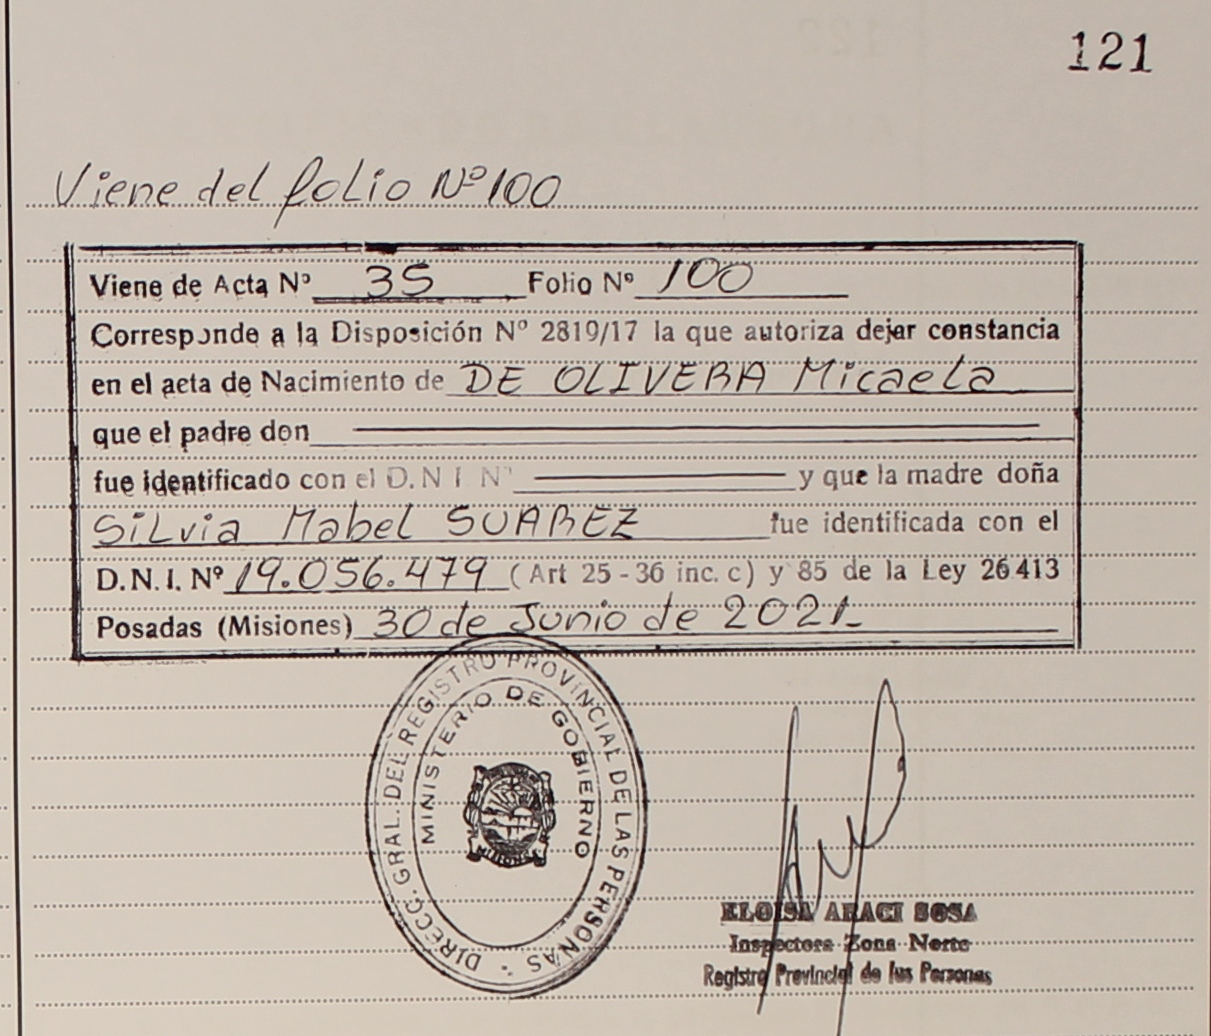 121
Viene del folio Nº 100
Viene de Acta Nº 35 Folio Nº 100
Corresponde a la Disposición Nº 2819/17 la que autoriza dejar constancia
en el acta de Nacimiento de DE OLIVERA Micaela
que el padre don
fue identificado con el D.N.I. Nº y que la madre doña
Silvia Mabel SUAREZ fue identificada con el
D.N.I. Nº 19.056.479 (Art 25 - 36 inc. c) y 85 de la Ley 26413
Posadas (Misiones) 30 de Junio de 2021
DIRECC. GRAL. DEL REGISTRO PROVINCIAL DE LAS PERSONAS -
MINISTERIO DE GOBIERNO
MISIONES
ELOISA ARACI SOSA
Inspectora Zona Norte
Registro Provincial de las Personas